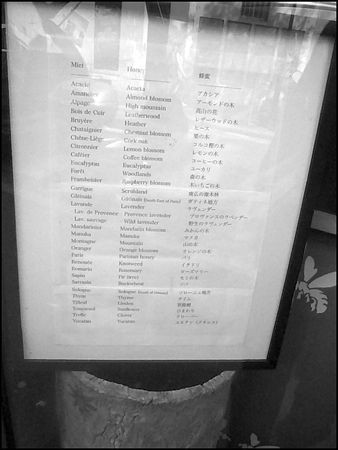 Miel Honey 蜂蜜
Acacia Acacia アカシア
Amandier Almond blossom アーモンドの木
Alpage High mountain 高山の花
Bois de Cuir Leatherwood レザーウッドの木
Bruyère Heather ヒース
Chataignier Chestnut blossom 栗の木
Chêne-Liège Cork oak コルク樫の木
Citronnier Lemon blossom レモンの木
Caféier Coffee blossom コーヒーの木
Eucalyptus Eucalyptus ユーカリ
Forêt Woodlands 森の木
Framboisier Raspberry blossom 木いちごの木
Garrigue Scrubland
Gâtinais Gâtinais (South East of Paris) ガティネ地方
Lavande Lavender ラヴェンダー
Lav. de Provence Provence lavender プロヴァンスのラベンダー
Lav. sauvage Wild lavender 野生のラヴェンダー
Mandarinier Mandarin blossom みかんの木
Manuka Manuka マヌカ
Montagne Mountain 山の木
Oranger Orange blossom オレンジの木
Paris Parisian honey パリ
Renouée Knotweed イタドリ
Romarin Rosemary ローズマリー
Sapin Fir (tree) モミの木
Sarrasin Buckwheat ソバ
Sologne Sologne (South of Orleans) ソローニュ地方
Thym Thyme タイム
Tilleul Linden 菩提樹
Tournesol Sunflower ひまわり
Trèfle Clover クローバー
Yucatan Yucatan ユカタン (メキシコ)